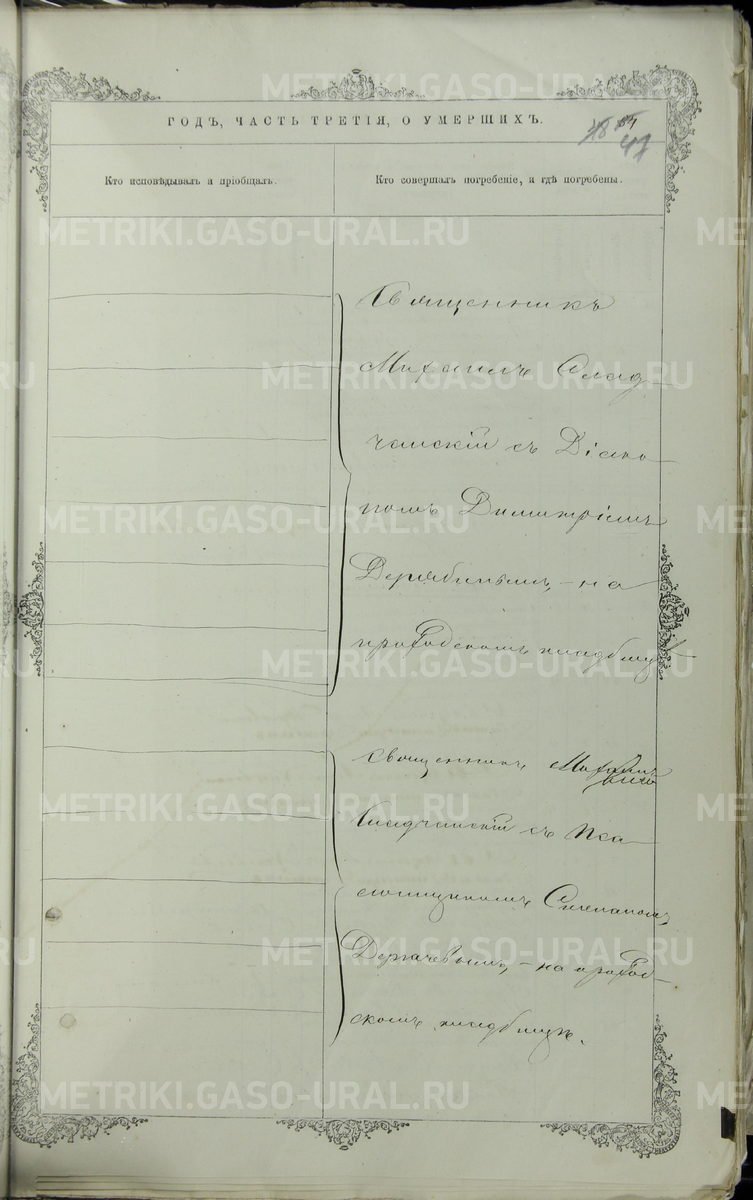 ГОДЪ, ЧАСТЬ ТРЕТІЯ, О УМЕРШИХЪ.
47
Кто исповѣдывалъ и пріобщалъ.
Кто совершалъ погребеніе, и гдѣ погребены.
Священникъ
Михаилъ Слад
чанскій съ Діако
номъ Димитріемъ
Дерябинымъ, – на
приходскомъ кладбищѣ
Священникъ Михаилъ
Сладчанскій съ Пса
ломщикомъ Степаномъ
Дергачевымъ, – на приход
скомъ кладбищѣ.
METRIKI.GASO-URAL.RU